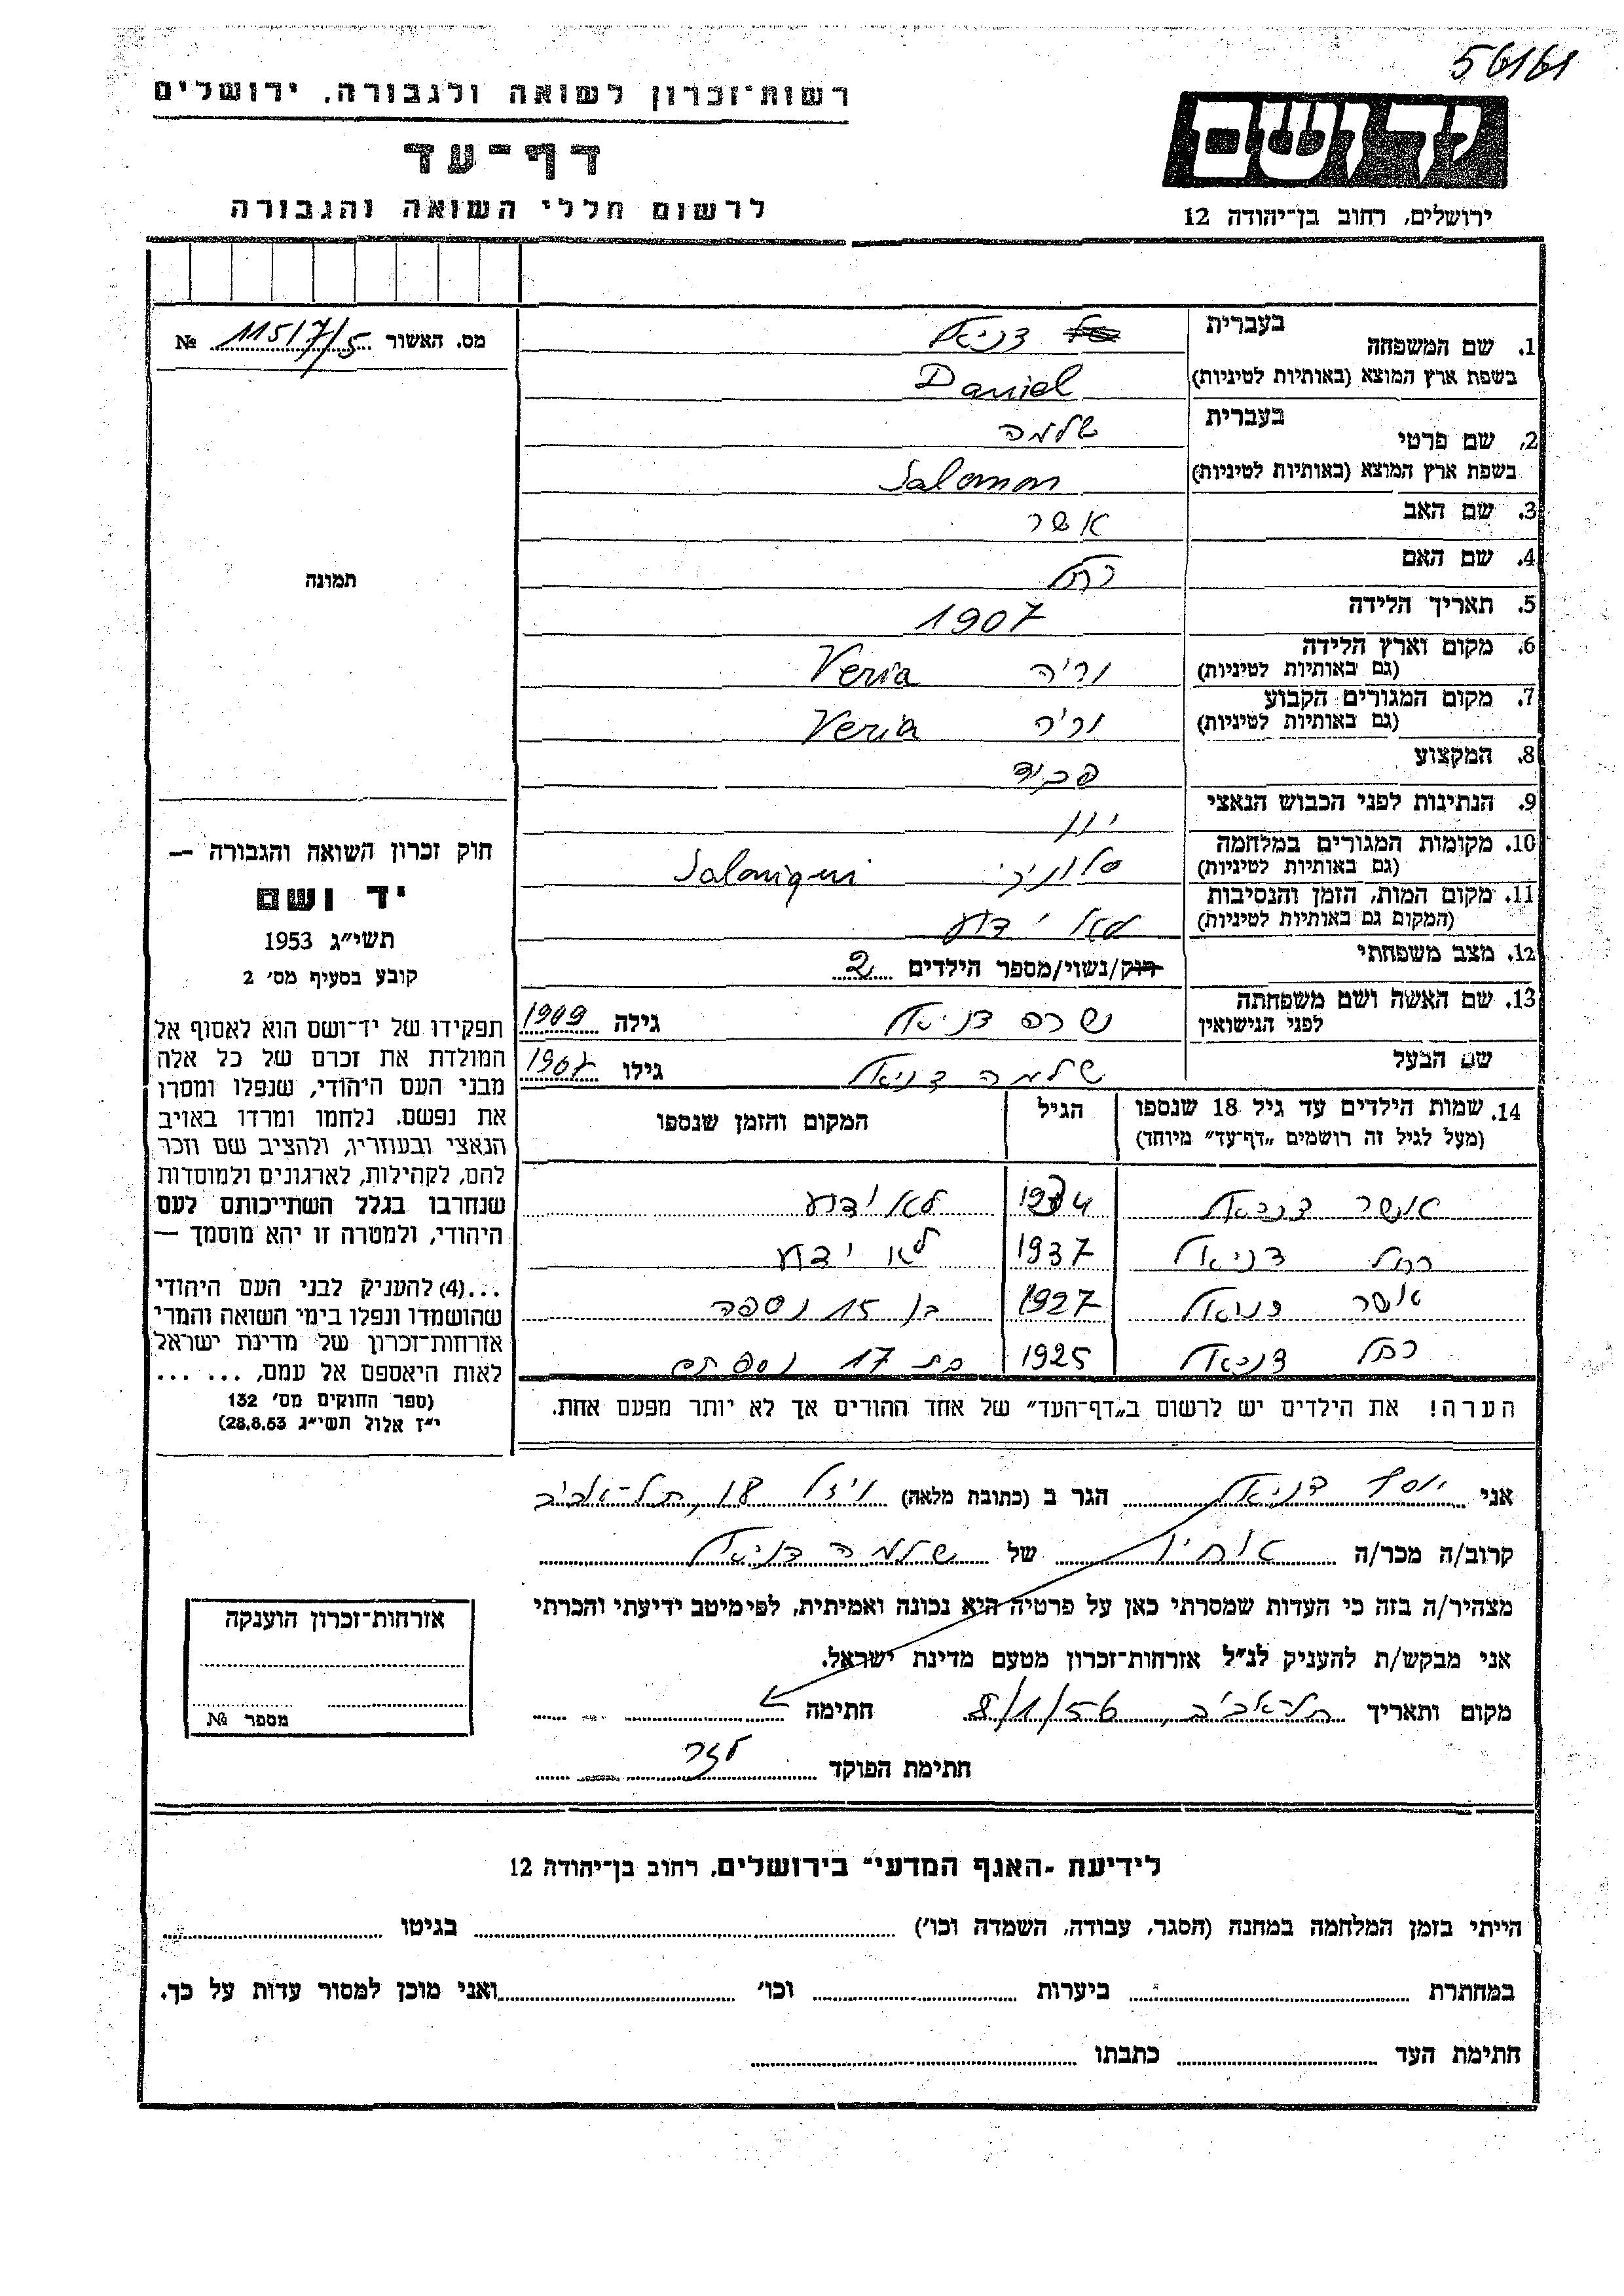 56161
רשות־זכרון לשואה ולגבורה, ירושלים
דף־עד
לרשום חללי השואה והגבורה
יד ושם
ירושלים, רחוב בן־יהודה 12
מס. האשור 11517/5 №
תמונה
חוק זכרון השואה והגבורה —
יד ושם
תשי״ג 1953
קובע בסעיף מס׳ 2
תפקידו של יד־ושם הוא לאסוף אל
המולדת את זכרם של כל אלה
מבני העם היהודי, שנפלו ומסרו
את נפשם, נלחמו ומרדו באויב
הנאצי ובעוזריו, ולהציב שם וזכר
להם, לקהילות, לארגונים ולמוסדות
שנחרבו בגלל השתייכותם לעם
היהודי, ולמטרה זו יהא מוסמך —
...(4) להעניק לבני העם היהודי
שהושמדו ונפלו בימי השואה והמרי
אזרחות־זכרון של מדינת ישראל
לאות היאספם אל עמם, ... ...
(ספר החוקים מס׳ 132
י״ז אלול תשי״ג 28.8.53)
1. שם המשפחה בעברית דניאל
בשפת ארץ המוצא (באותיות לטיניות) Daniel
2. שם פרטי בעברית שלמה
בשפת ארץ המוצא (באותיות לטיניות) Salomon
3. שם האב אשר
4. שם האם רחל
5. תאריך הלידה 1907
6. מקום וארץ הלידה
(גם באותיות לטיניות) וריה Veria
7. מקום המגורים הקבוע
(גם באותיות לטיניות) וריה Veria
8. המקצוע פקיד
9. הנתינות לפני הכבוש הנאצי יוון
10. מקומות המגורים במלחמה
(גם באותיות לטיניות) סלוניקי Saloniqui
11. מקום המות, הזמן והנסיבות
(המקום גם באותיות לטיניות) לא ידוע
12. מצב משפחתי רווק/נשוי/מספר הילדים 2
13. שם האשה ושם משפחתה
לפני הנישואין דניאל גילה 1909
שם הבעל שלמה דניאל גילו 1907
14. שמות הילדים עד גיל 18 שנספו הגיל המקום והזמן שנספו
(מעל לגיל זה רושמים „דף־עד״ מיוחד)
אשר דניאל 1934 לא ידוע
רחל דניאל 1937 לא ידוע
אשר דניאל 1927 בן 15 נספה
רחל דניאל 1925 בת 17 נספתה
הערה! את הילדים יש לרשום ב„דף־העד״ של אחד ההורים אך לא יותר מפעם אחת.
אני יוסף דניאל הגר ב (כתובת מלאה) 18, תל־אביב
קרוב/ה מכר/ה אחיו של שלמה דניאל
מצהיר/ה בזה כי העדות שמסרתי כאן על פרטיה היא נכונה ואמיתית, לפי מיטב ידיעתי והכרתי
אני מבקש/ת להעניק לנ״ל אזרחות־זכרון מטעם מדינת ישראל.
מקום ותאריך תל־אביב, 8/1/56 חתימה
חתימת הפוקד
אזרחות־זכרון הוענקה
מספר №
לידיעת ״האגף המדעי״ בירושלים, רחוב בן־יהודה 12
הייתי בזמן המלחמה במחנה (הסגר, עבודה, השמדה וכו׳) בגיטו
במחתרת ביערות וכו׳ ואני מוכן למסור עדות על כך.
חתימת העד כתבתו